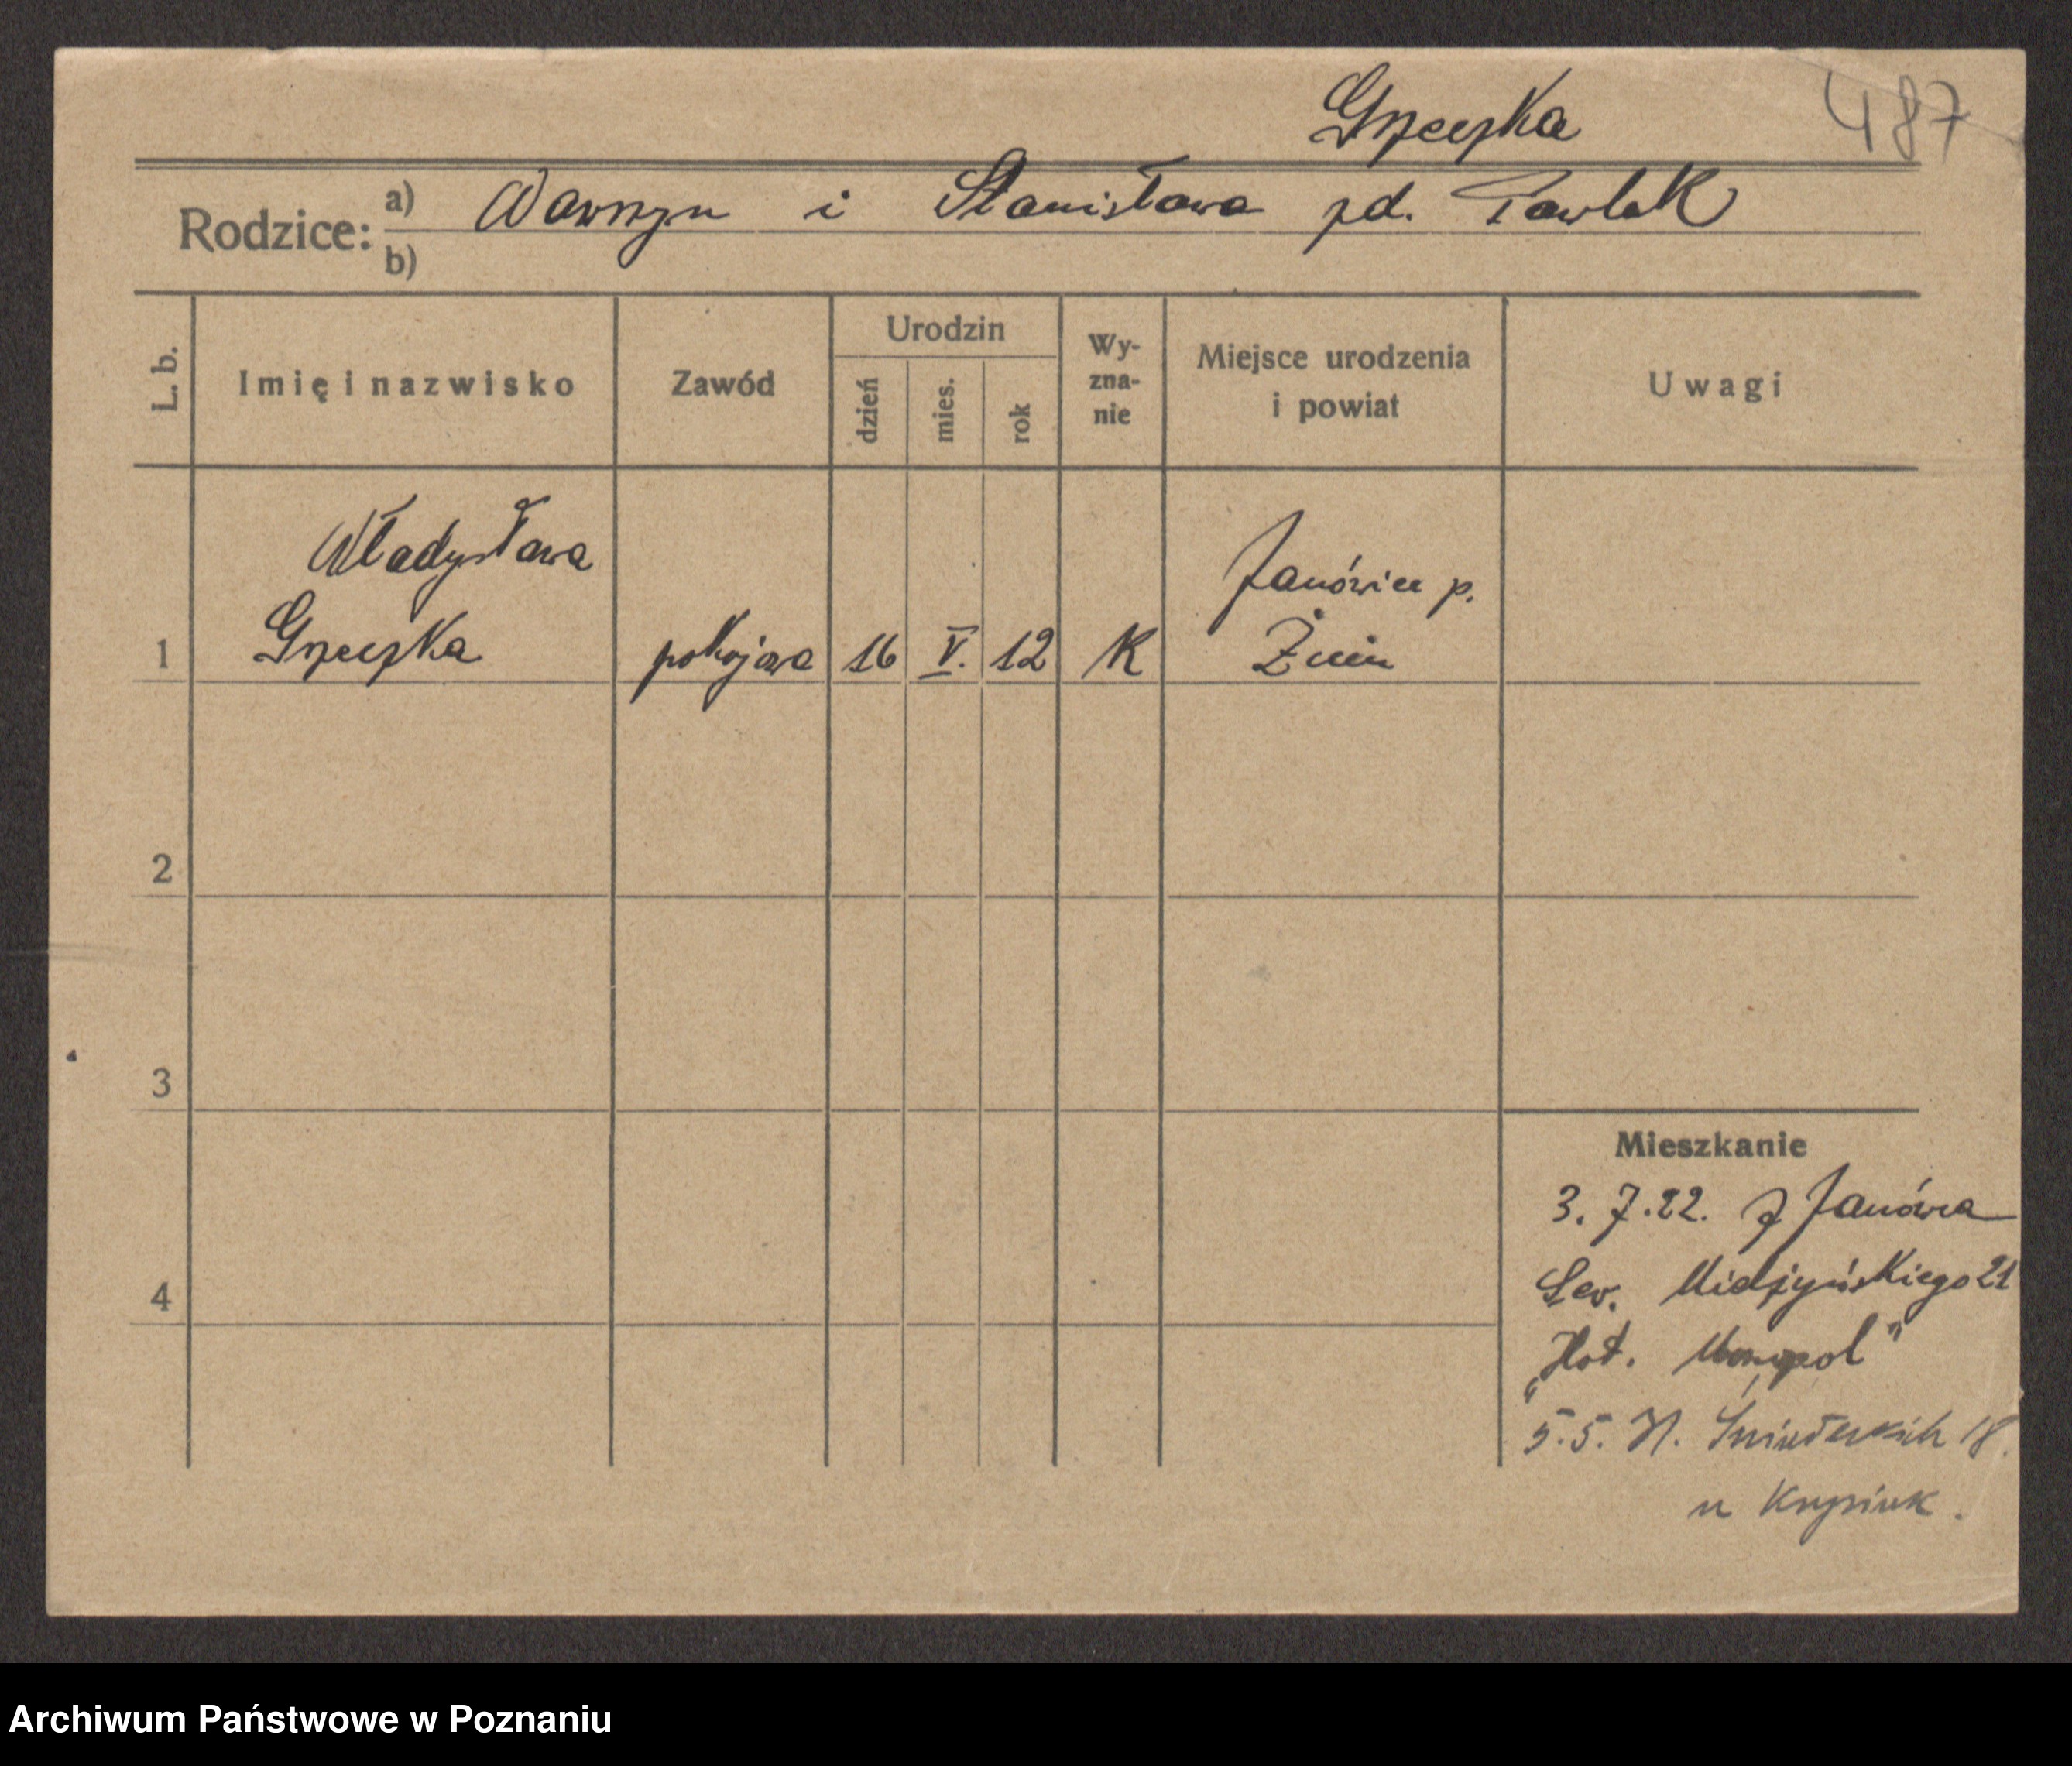 Grzeczka
487
Rodzice:
a) Wawrzyn i Stanisława zd. Pawlak
b)
L. b.
Imię i nazwisko
Zawód
Urodzin
dzień
mies.
rok
Wy-
zna-
nie
Miejsce urodzenia
i powiat
Uwagi
Władysława
Janówiec p.
1 Grzeczka pokojowa 16 V. 12 K Żnin
2
3
4
Mieszkanie
3. 7. 22. z Janówca
Sew. Mielżyńskiego 21
„Hot. Monopol"
5.5. Śniadeckich 18.
u Krysiak.
Archiwum Państwowe w Poznaniu